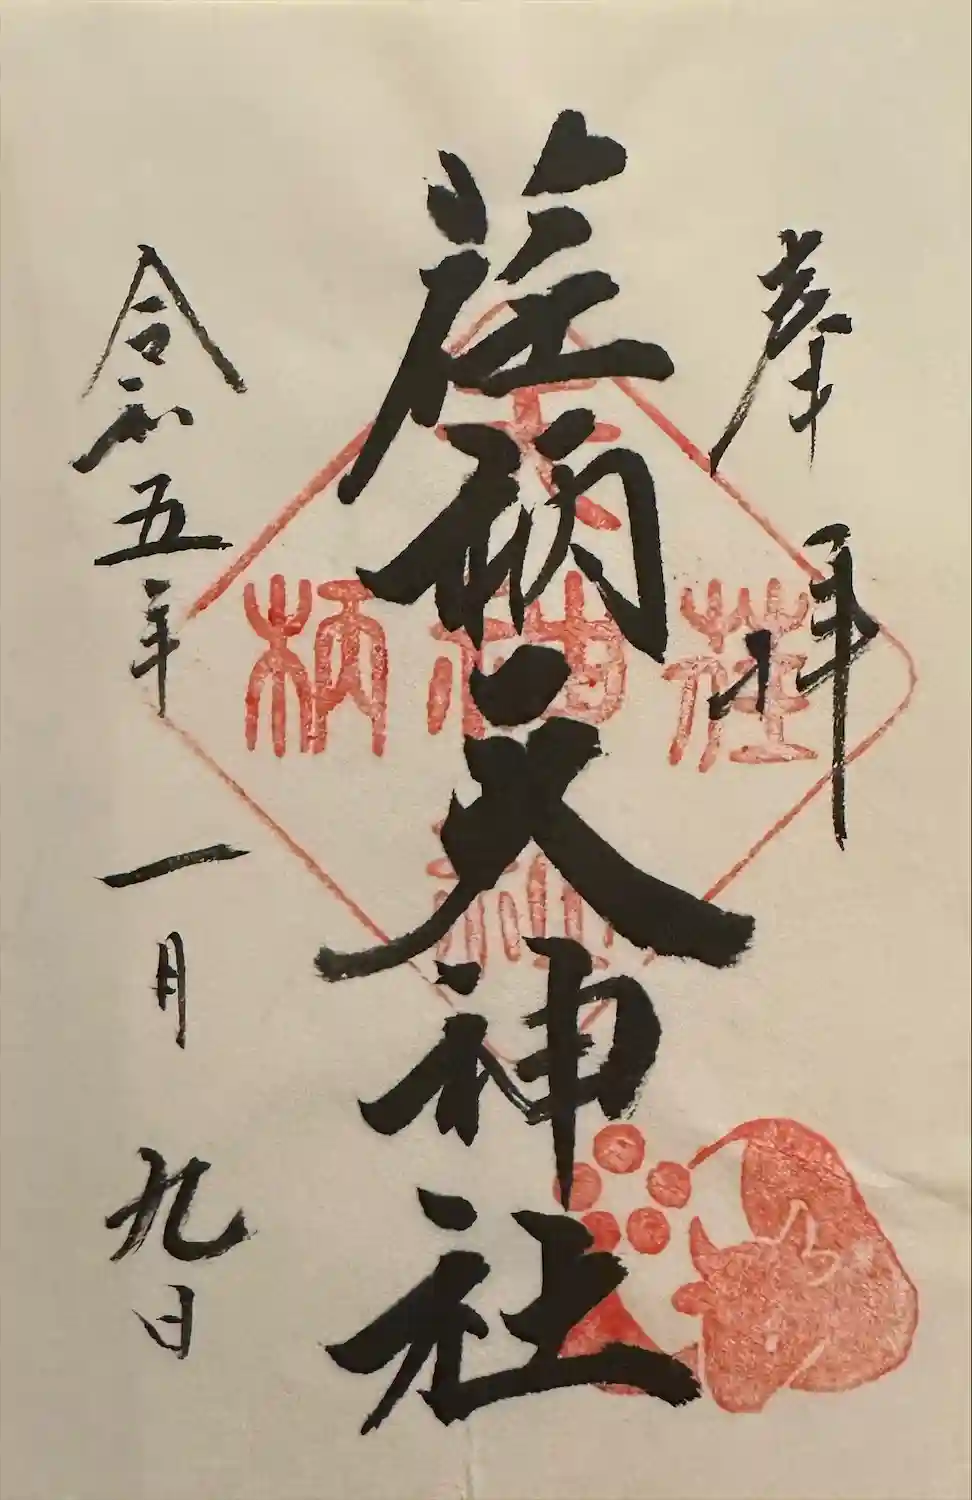 奉拝
荏柄天神社
令和五年一月九日
天
荏神柄
社